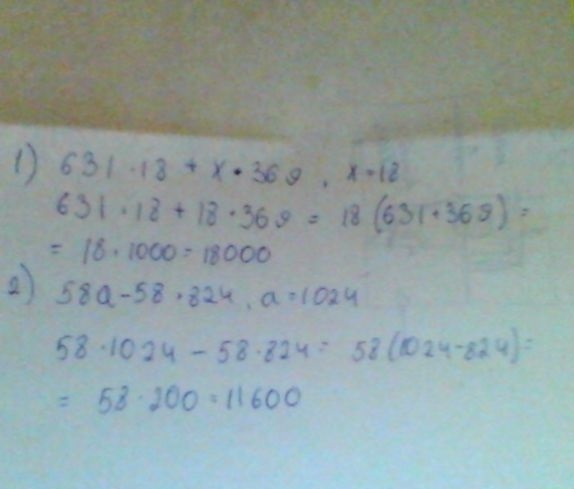 1) 631 · 18 + x · 369, x = 18
631 · 18 + 18 · 369 = 18 (631 + 369) =
= 18 · 1000 = 18000
2) 58a - 58 · 824, a = 1024
58 · 1024 - 58 · 824 = 58 (1024 - 824) =
= 58 · 200 = 11600